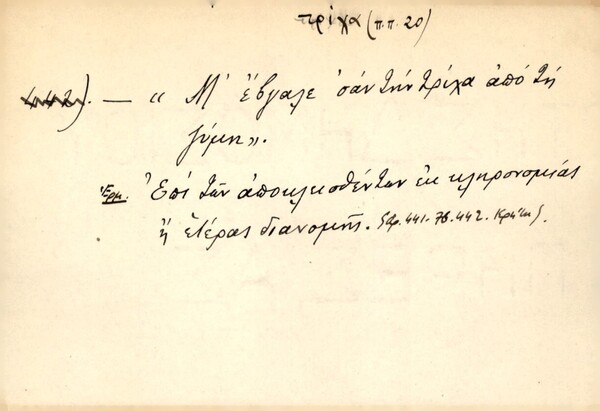 τρίχα (π.π. 20)
442). — « Μ' ἔβγαλε 'σάν τήν τρίχα ἀπό τή
ζύμη».
Ἑρμ. Ἐπί τῶν ἀποκλεισθέντων ἐκ κληρονομίας
ἤ ἑτέρας διανομῆς. (ἀρ. 441. 76. 442. Κρήτη).